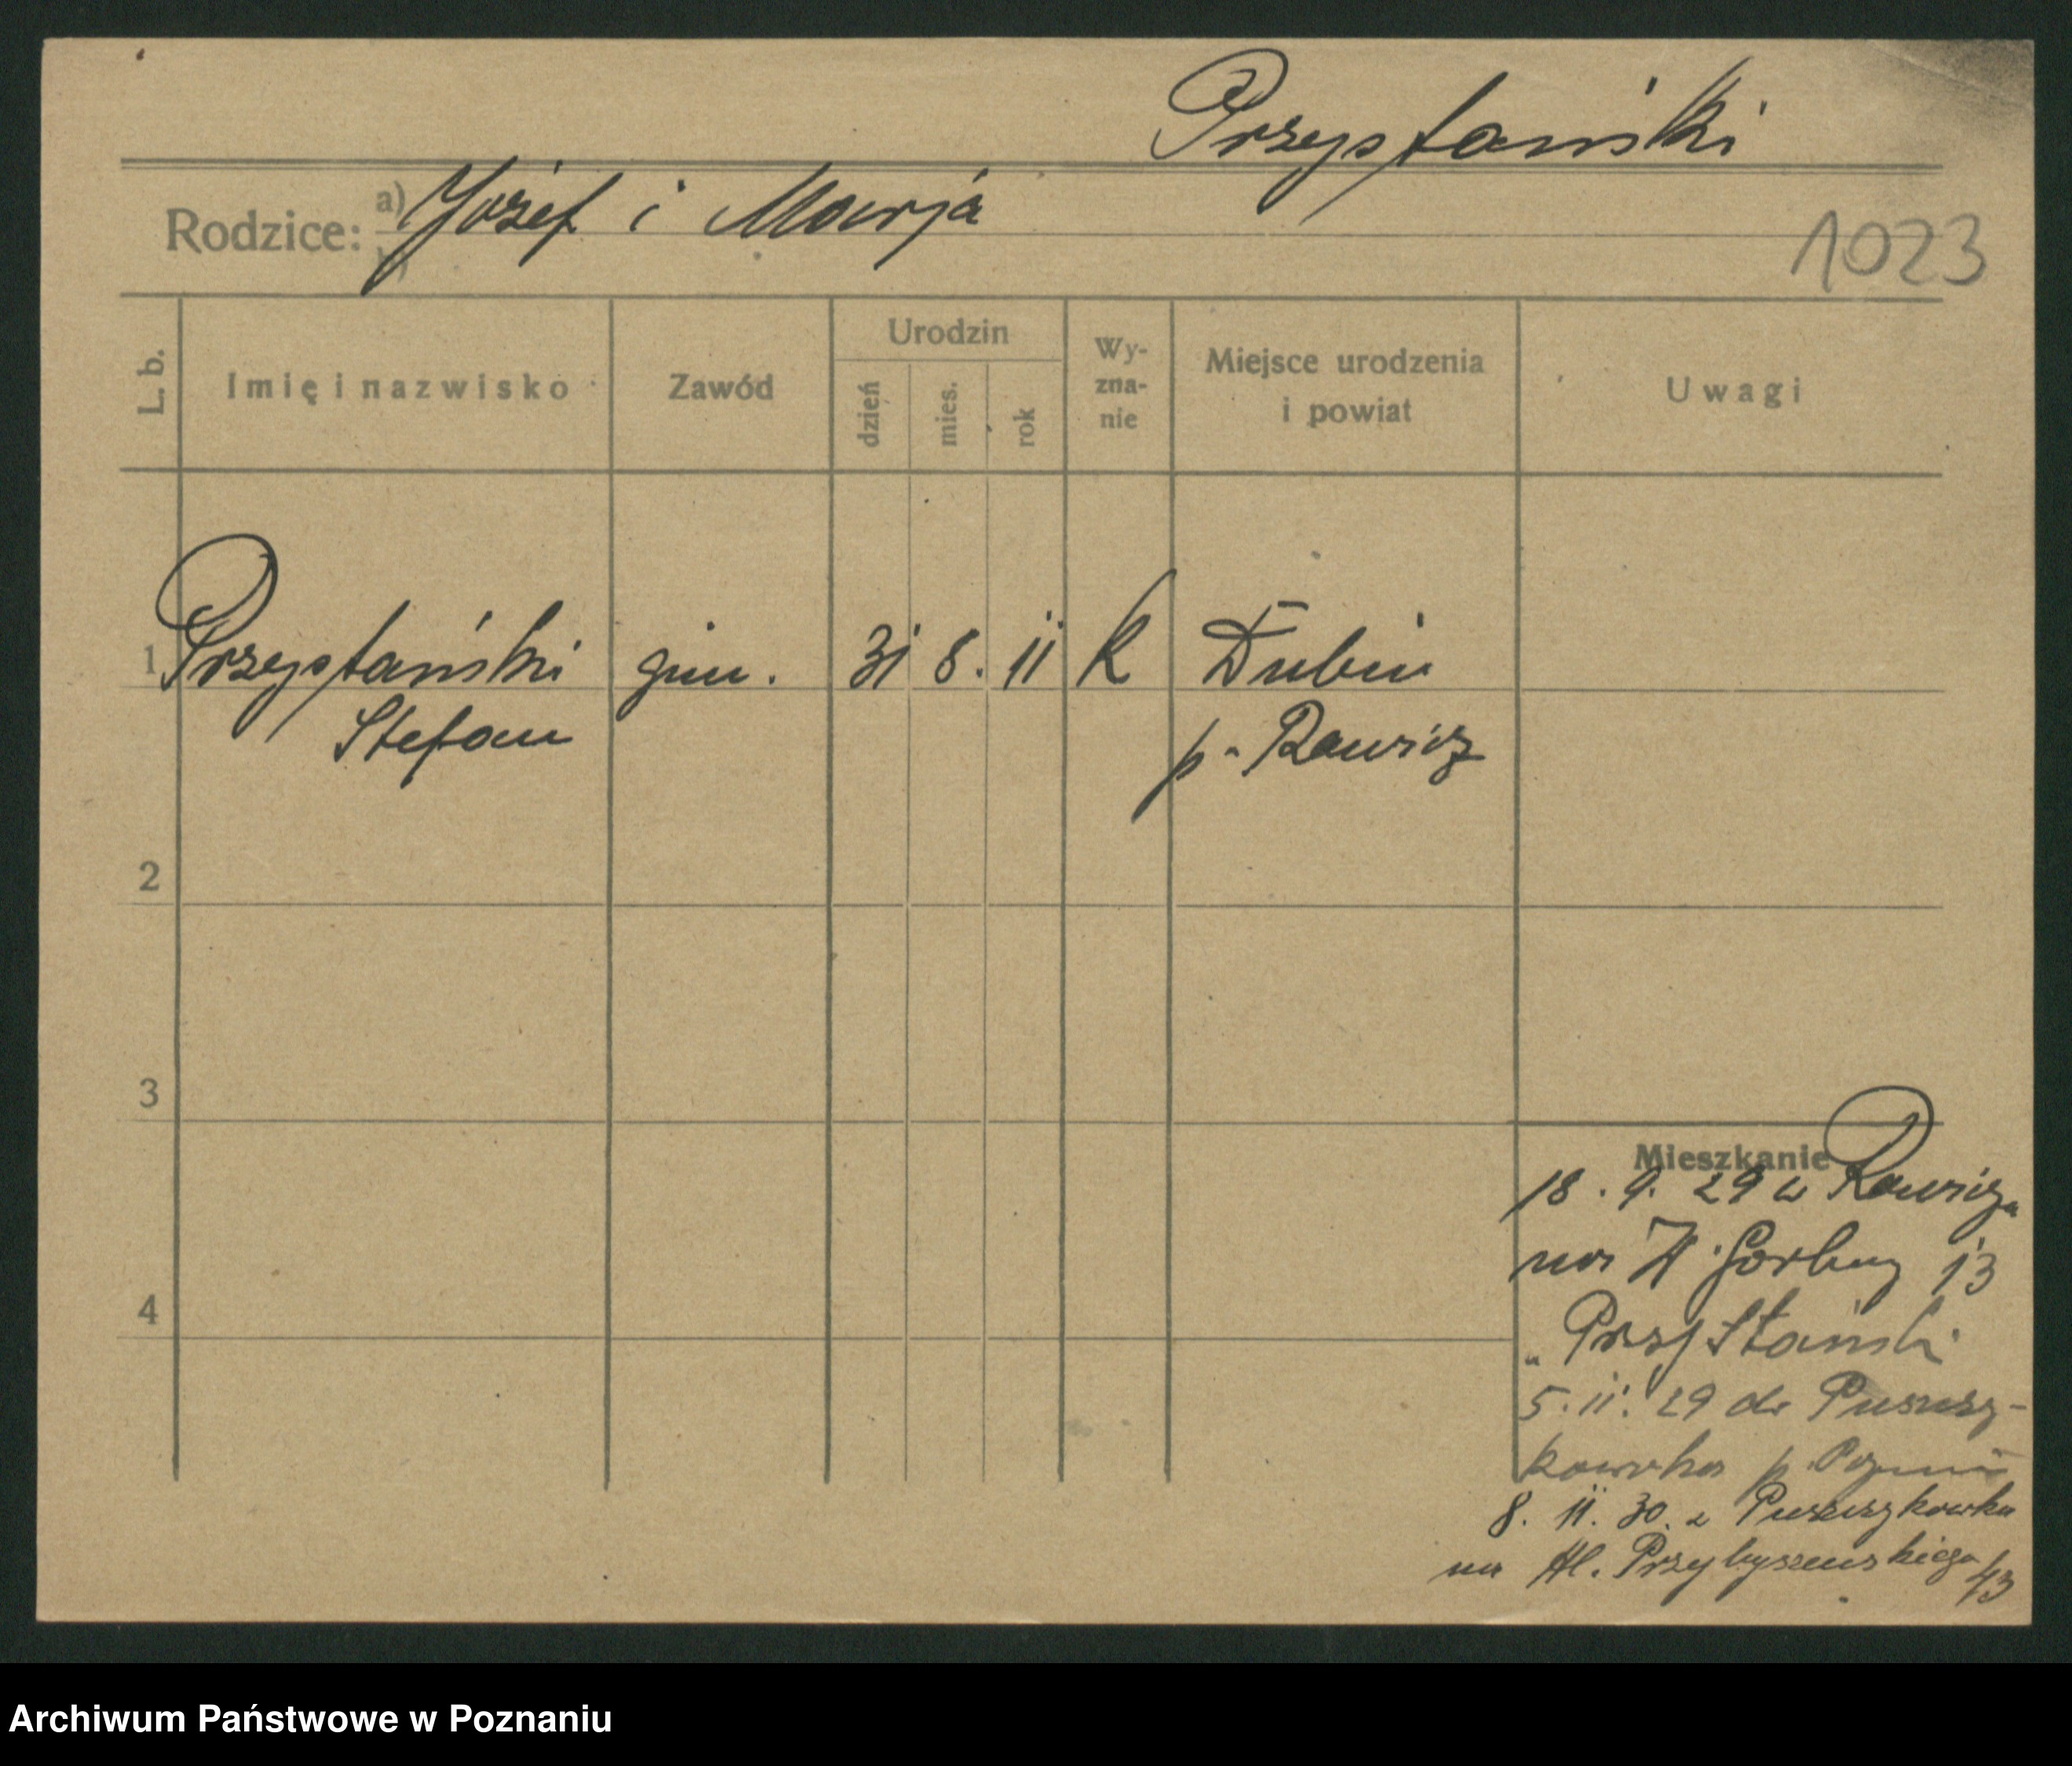 Przystański
Rodzice: a) Józef i Marja
b)
1023
L. b.
Imię i nazwisko
Zawód
Urodzin
dzień
mies.
rok
Wy-
zna-
nie
Miejsce urodzenia
i powiat
Uwagi
1 Przystański gim. 31 8. 11 K Dubin
Stefan p. Rawicz
2
3
4
Mieszkanie
18. 9. 29 Rawicza
na Garbary 13
Przystański
5. 11. 29 do Puszczy-
kowka p.
8. 11. 30. z Puszczykowka
na Przybyszewskiego 43
Archiwum Państwowe w Poznaniu